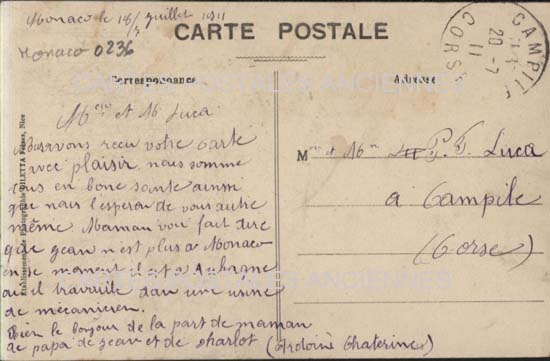 Monaco le 18/7 juillet 1911
CARTE POSTALE
Monaco 0236
CARTES POSTALES ANCIENNES
Correspondance
Adresse
CAMPILE
20-7
11
CORSE
Mme et M Luca
Nous avons reçu votre carte
avec plaisir nous somme
tous en bone santé ainsi
que nous l'esperon de vous autre
même. Maman vou fait dire
que jean n'est plus a Monaco
en se moment il est a Aubagne
ou il travaille dan une usine
de mécanicien.
Bien le bonjour de la part de maman
de papa de jean et de charlot (Antoine Chaterine)
Mme et Mr P. F. Luca
a Campile
(Corse)
Etablissements de Photographie GILETTA Frères, Nice